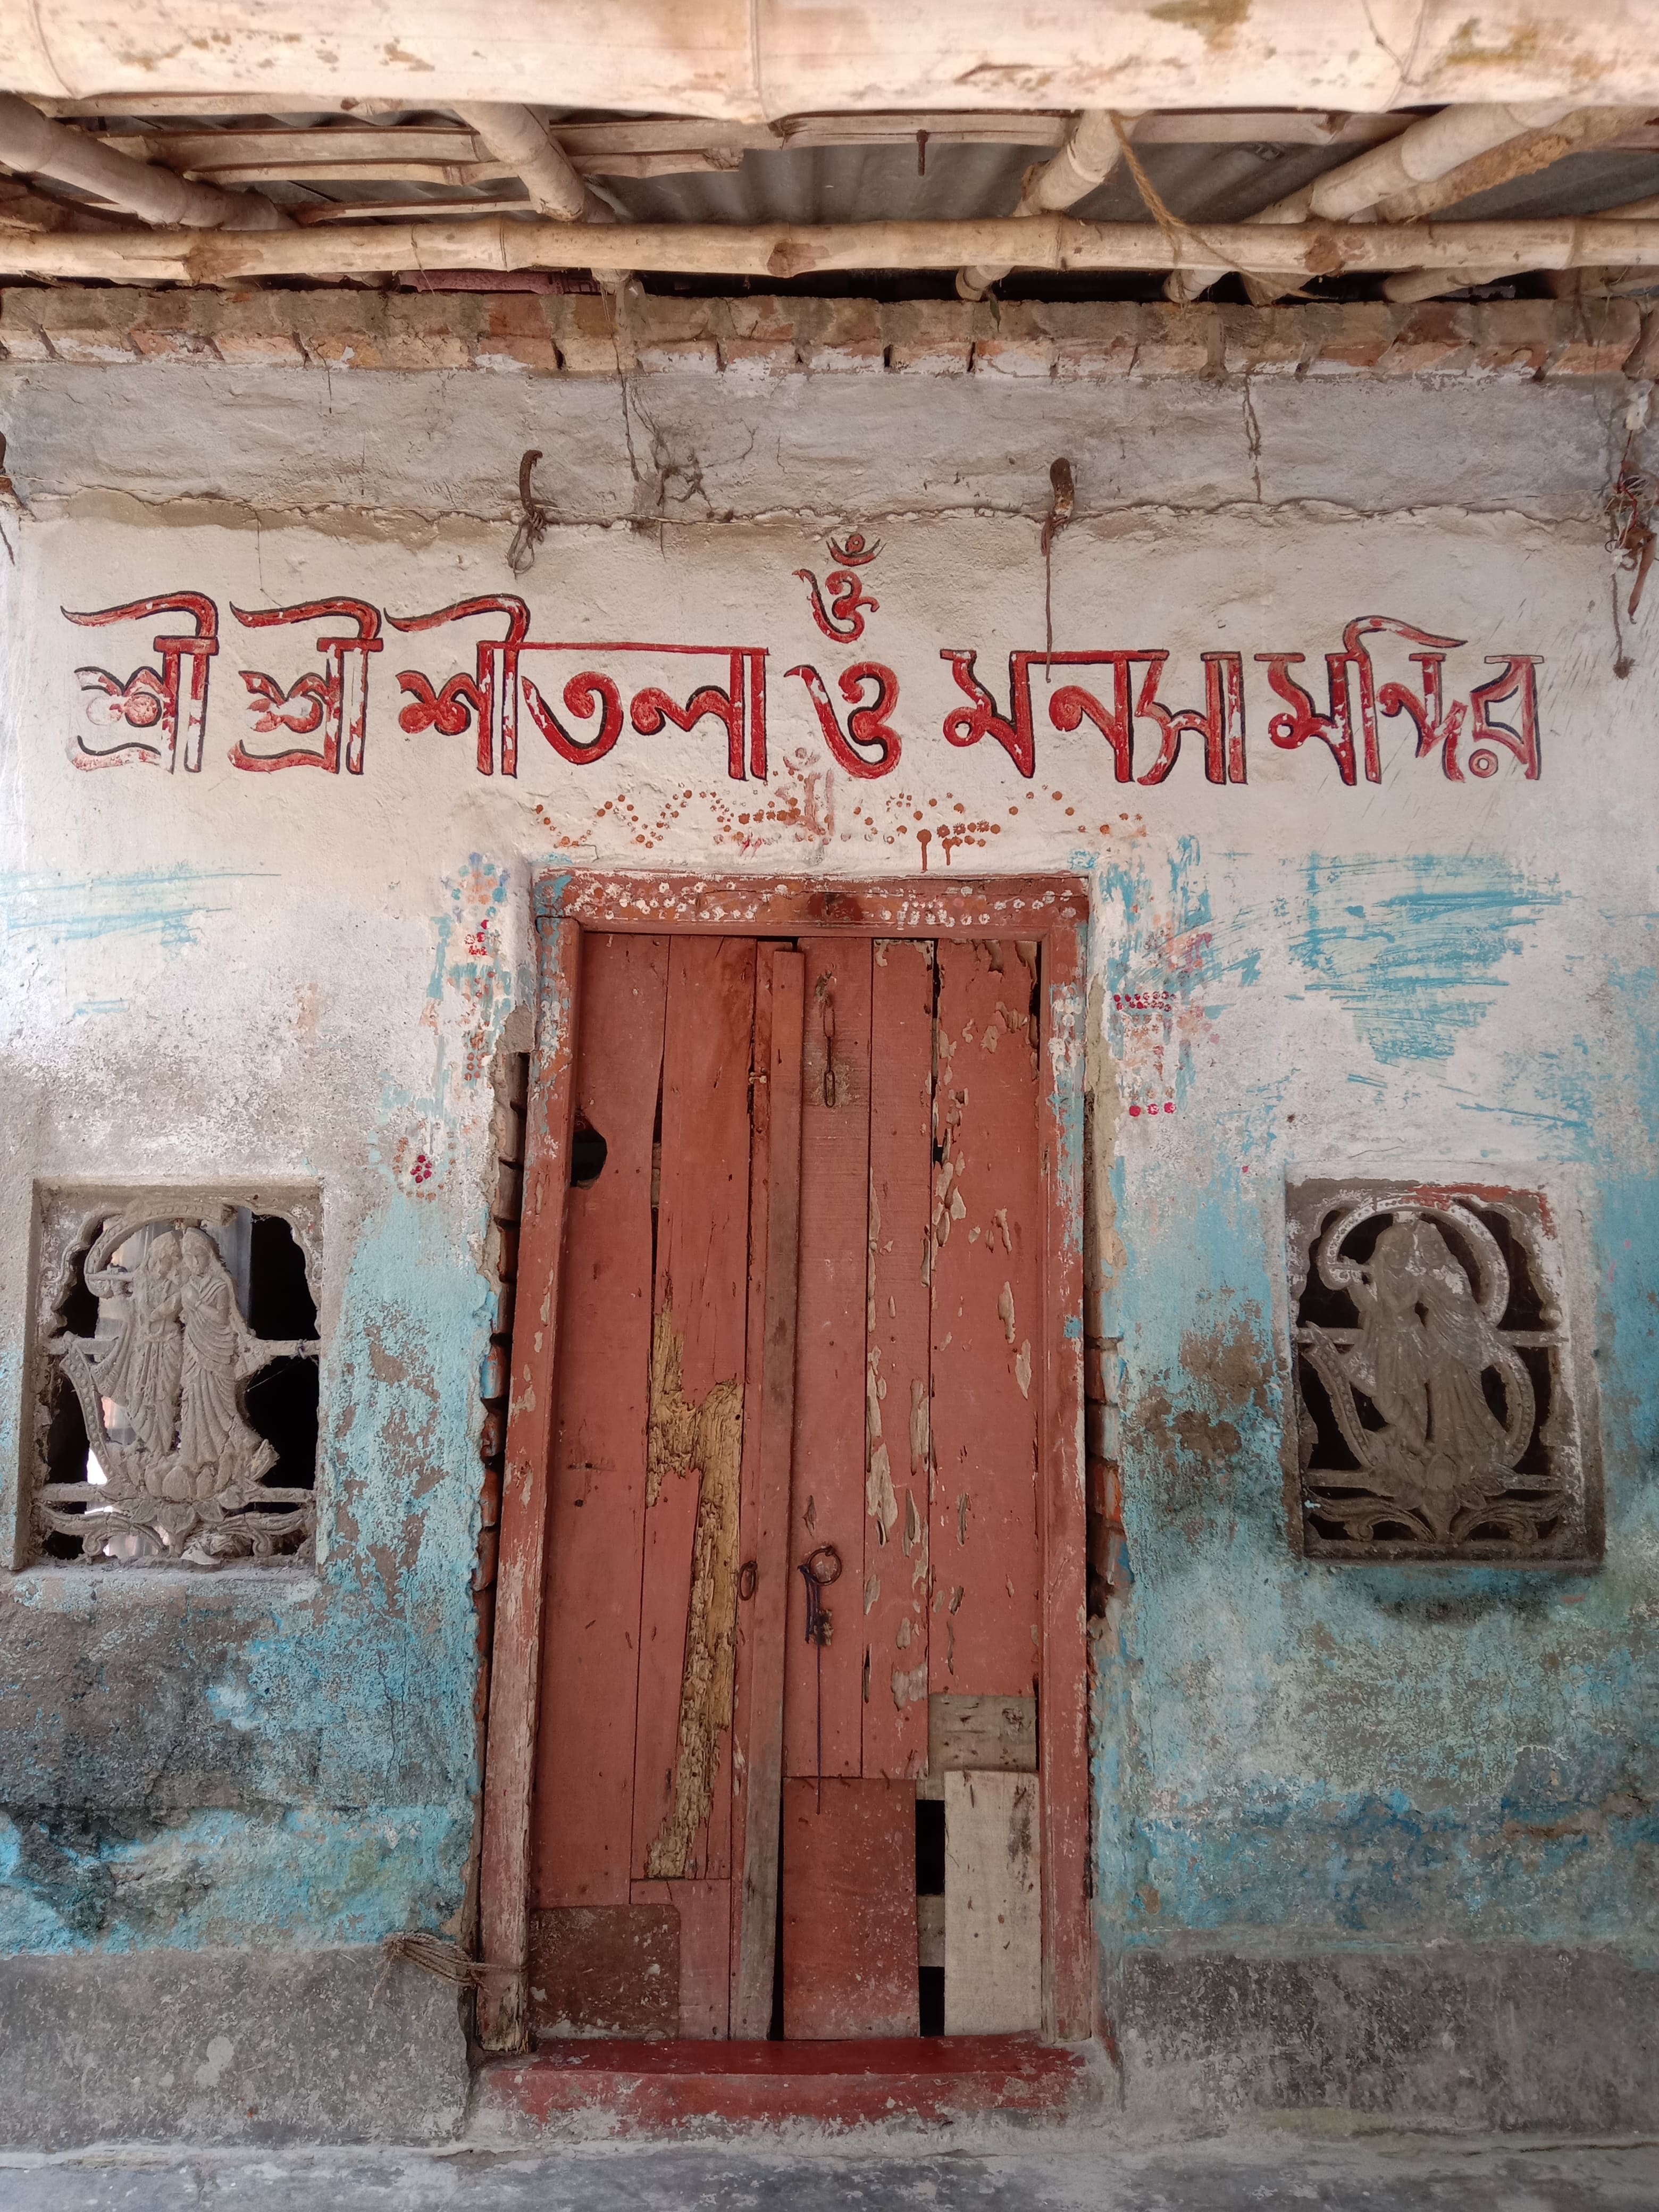 ওঁ
শ্রী শ্রী শীতলা ও মনসা মন্দির